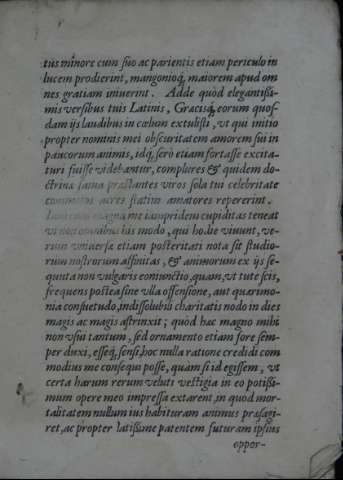 tùs minore cum suo ac parientis etiam periculo in
lucem prodierint, mangonioq́; maiorem apud om
nes gratiam inierint. Adde quòd elegantißi-
mis versibus tuis Latinis, Græcisq́; eorum quos-
dam ijs laudibus in cœlum extulisti, vt qui initio
propter nominis mei obscuritatem amorem sui in
paucorum animis, idq́; serò etiam fortasse excita-
turi fuisse videbantur, complures & quidem do-
ctrina præstantes viros sola tui celebritate
acres statim amatores repererint.
magna me iampridem cupiditas teneat
vt non omnibus iàs modo, qui hodie viuunt, ve-
rùm vniuersæ etiam posteritati nota sit studio-
rum nostrorum affinitas, & animorum ex ijs se-
quuta non vulgaris coniunctio, quam, vt tute scis,
frequens postea sine vlla offensione, aut quærimo-
nia consuetudo, indissolubili charitatis nodo in dies
magis ac magis astrinxit; quòd hæc magno mihi
non vsui tantum, sed ornamento etiam fore sem-
per duxi, esseq́; sensi, hoc nulla ratione credidi com
modius me consequi posse, quàm si id egissem, vt
certa harum rerum veluti vestigia in eo potißi-
mum opere meo impressa extarent, in quod mor-
talitatem nullum ius habituram animus præsagi-
ret, ac propter latißimè patentem futuram ipsius
oppor-